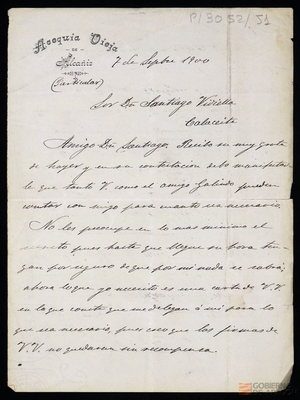 P/3052/51
Acequia Vieja
DE
Alcañiz
(Particular)
7 de Sepbre 1900
Sor Dn Santiago Vidiella
Calaceite
Amigo Dn Santiago, Recibo su muy grata
de hoy, y en su contestacion debo manifestar
le que tanto V. como el amigo Galindo pueden
contar con migo para cuanto sea necesario.
No les preocupe en lo mas minimo el
secreto pues hasta que llegue su hora ten
gan por seguro de que por mi nada se sabrá;
ahora lo que yo necesito es una carta de V.V.
en la que conste que me delegan á mi para lo
que sea necesario, pues creo que los firmas de
V.V. no quedaran sin recompensa.
GOBIERNO
DE ARAGON